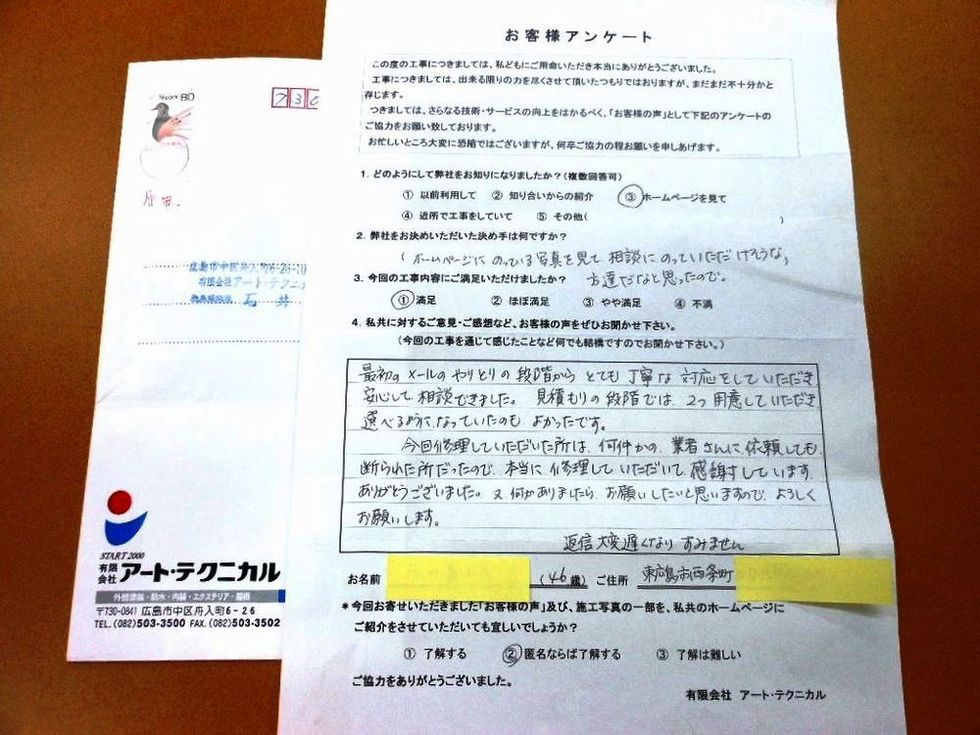 お客様アンケート
この度の工事につきましては、私どもにご用命いただき本当にありがとうございました。
工事につきましては、出来る限りの力を尽くさせて頂いたつもりではおりますが、まだまだ不十分かと
存じます。
つきましては、さらなる技術・サービスの向上をはかるべく、「お客様の声」として下記のアンケートの
ご協力をお願い致しております。
お忙しいところ大変に恐縮ではございますが、何卒ご協力の程お願いを申しあげます。
1. どのようにして弊社をお知りになりましたか？(複数回答可)
① 以前利用して ② 知り合いからの紹介 ③ ホームページを見て
④ 近所で工事をしていて ⑤ その他( )
2. 弊社をお決めいただいた決め手は何ですか？
(ホームページにのっている写真を見て相談にのっていただけそうな、
方達だなと思ったので。
3. 今回の工事内容にご満足いただけましたか？
① 満足 ② ほぼ満足 ③ やや満足 ④ 不満
4. 私共に対するご意見・ご感想など、お客様の声をぜひお聞かせ下さい。
(今回の工事を通じて感じたことなど何でも結構ですのでお聞かせ下さい。)
最初のメールのやりとりの段階からとても丁寧な対応をしていただき
安心して相談できました。見積もりの段階では、2つ用意していただき
選べるようになっていたのもよかったです。
今回修理していただいた所は、何件かの業者さんに依頼しても
断られた所だったので、本当に修理していただいて感謝しています。
ありがとうございました。又何かありましたら、お願いしたいと思いますので、よろしく
お願いします。
返信大変遅くなりすみません
お名前 (46歳) ご住所 東広島市西条町
*今回お寄せいただきました「お客様の声」及び、施工写真の一部を、私共のホームページに
ご紹介をさせていただいても宜しいでしょうか？
① 了解する ② 匿名ならば了解する ③ 了解は難しい
ご協力をありがとうございました。
有限会社 アート・テクニカル
NIPPON 80
730
広島市中区舟入町6-26-10
有限会社アート・テクニカ
石井
START 2000
有限会社 アート・テクニカル
外壁塗装・防水・内装・エクステリア・屋根
〒730-0841 広島市中区舟入町6-26
TEL.(082)503-3500 FAX.(082)503-3502